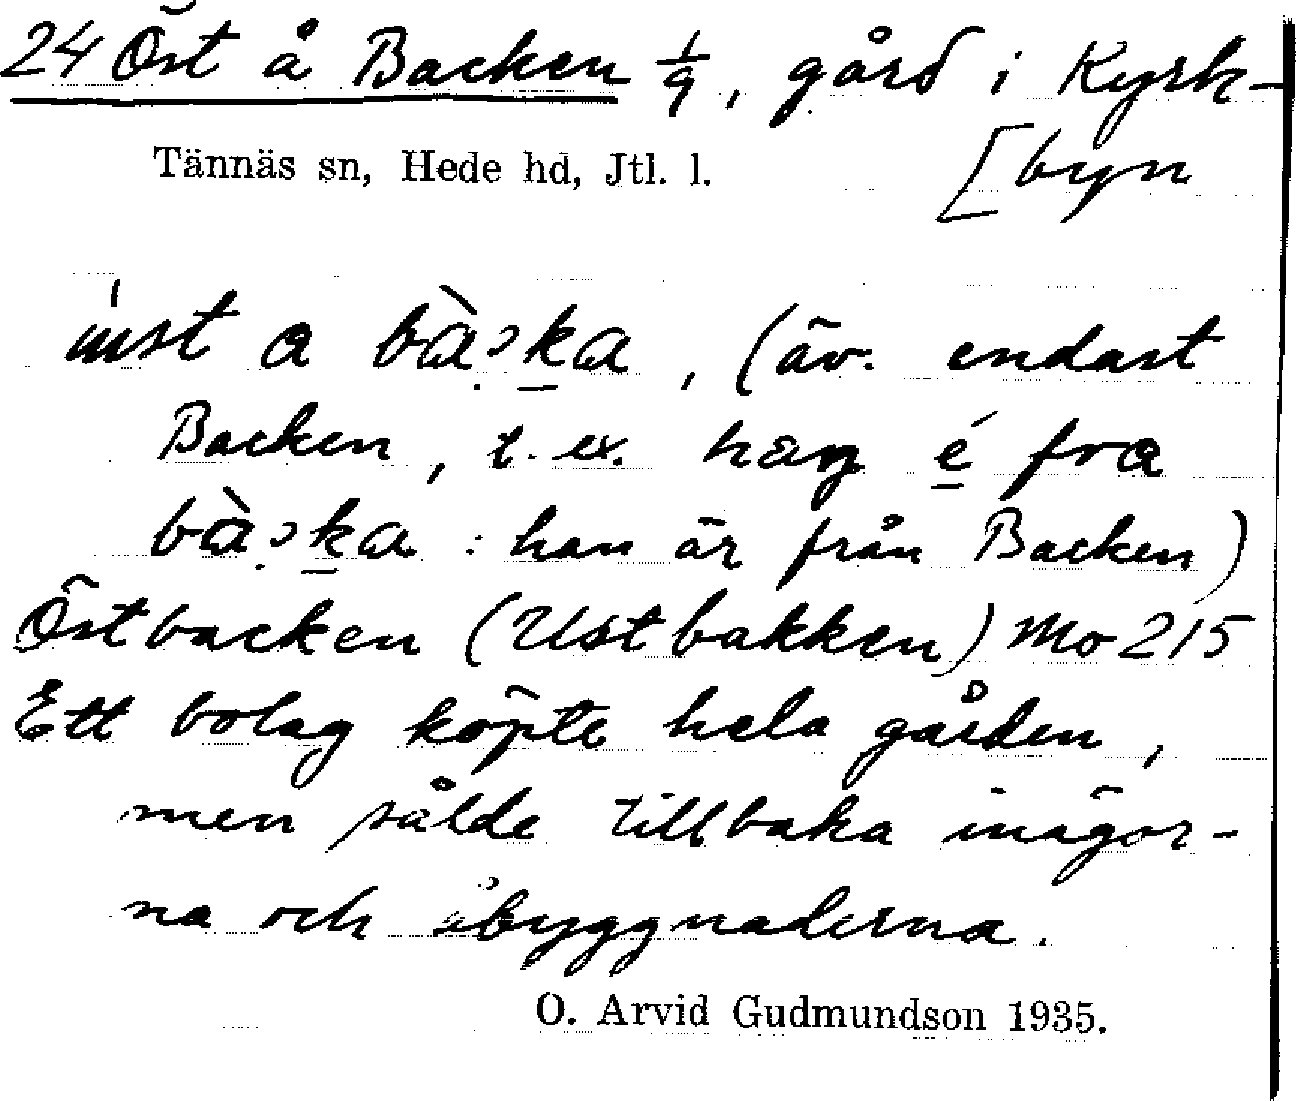 24 Öst å Backen 1/9, gård i Kyrk-
[byn
Tännäs sn, Hede hd, Jtl. l.
a bàka, (äv. endast
Backen, t. ex. han é fra
bàka : han är från Backen)
Östbacken (Ustbakken) Mo 215
Ett bolag köpte hela gården,
men sålde tillbaka inägor-
na och åbyggnaderna.
O. Arvid Gudmundson 1935.